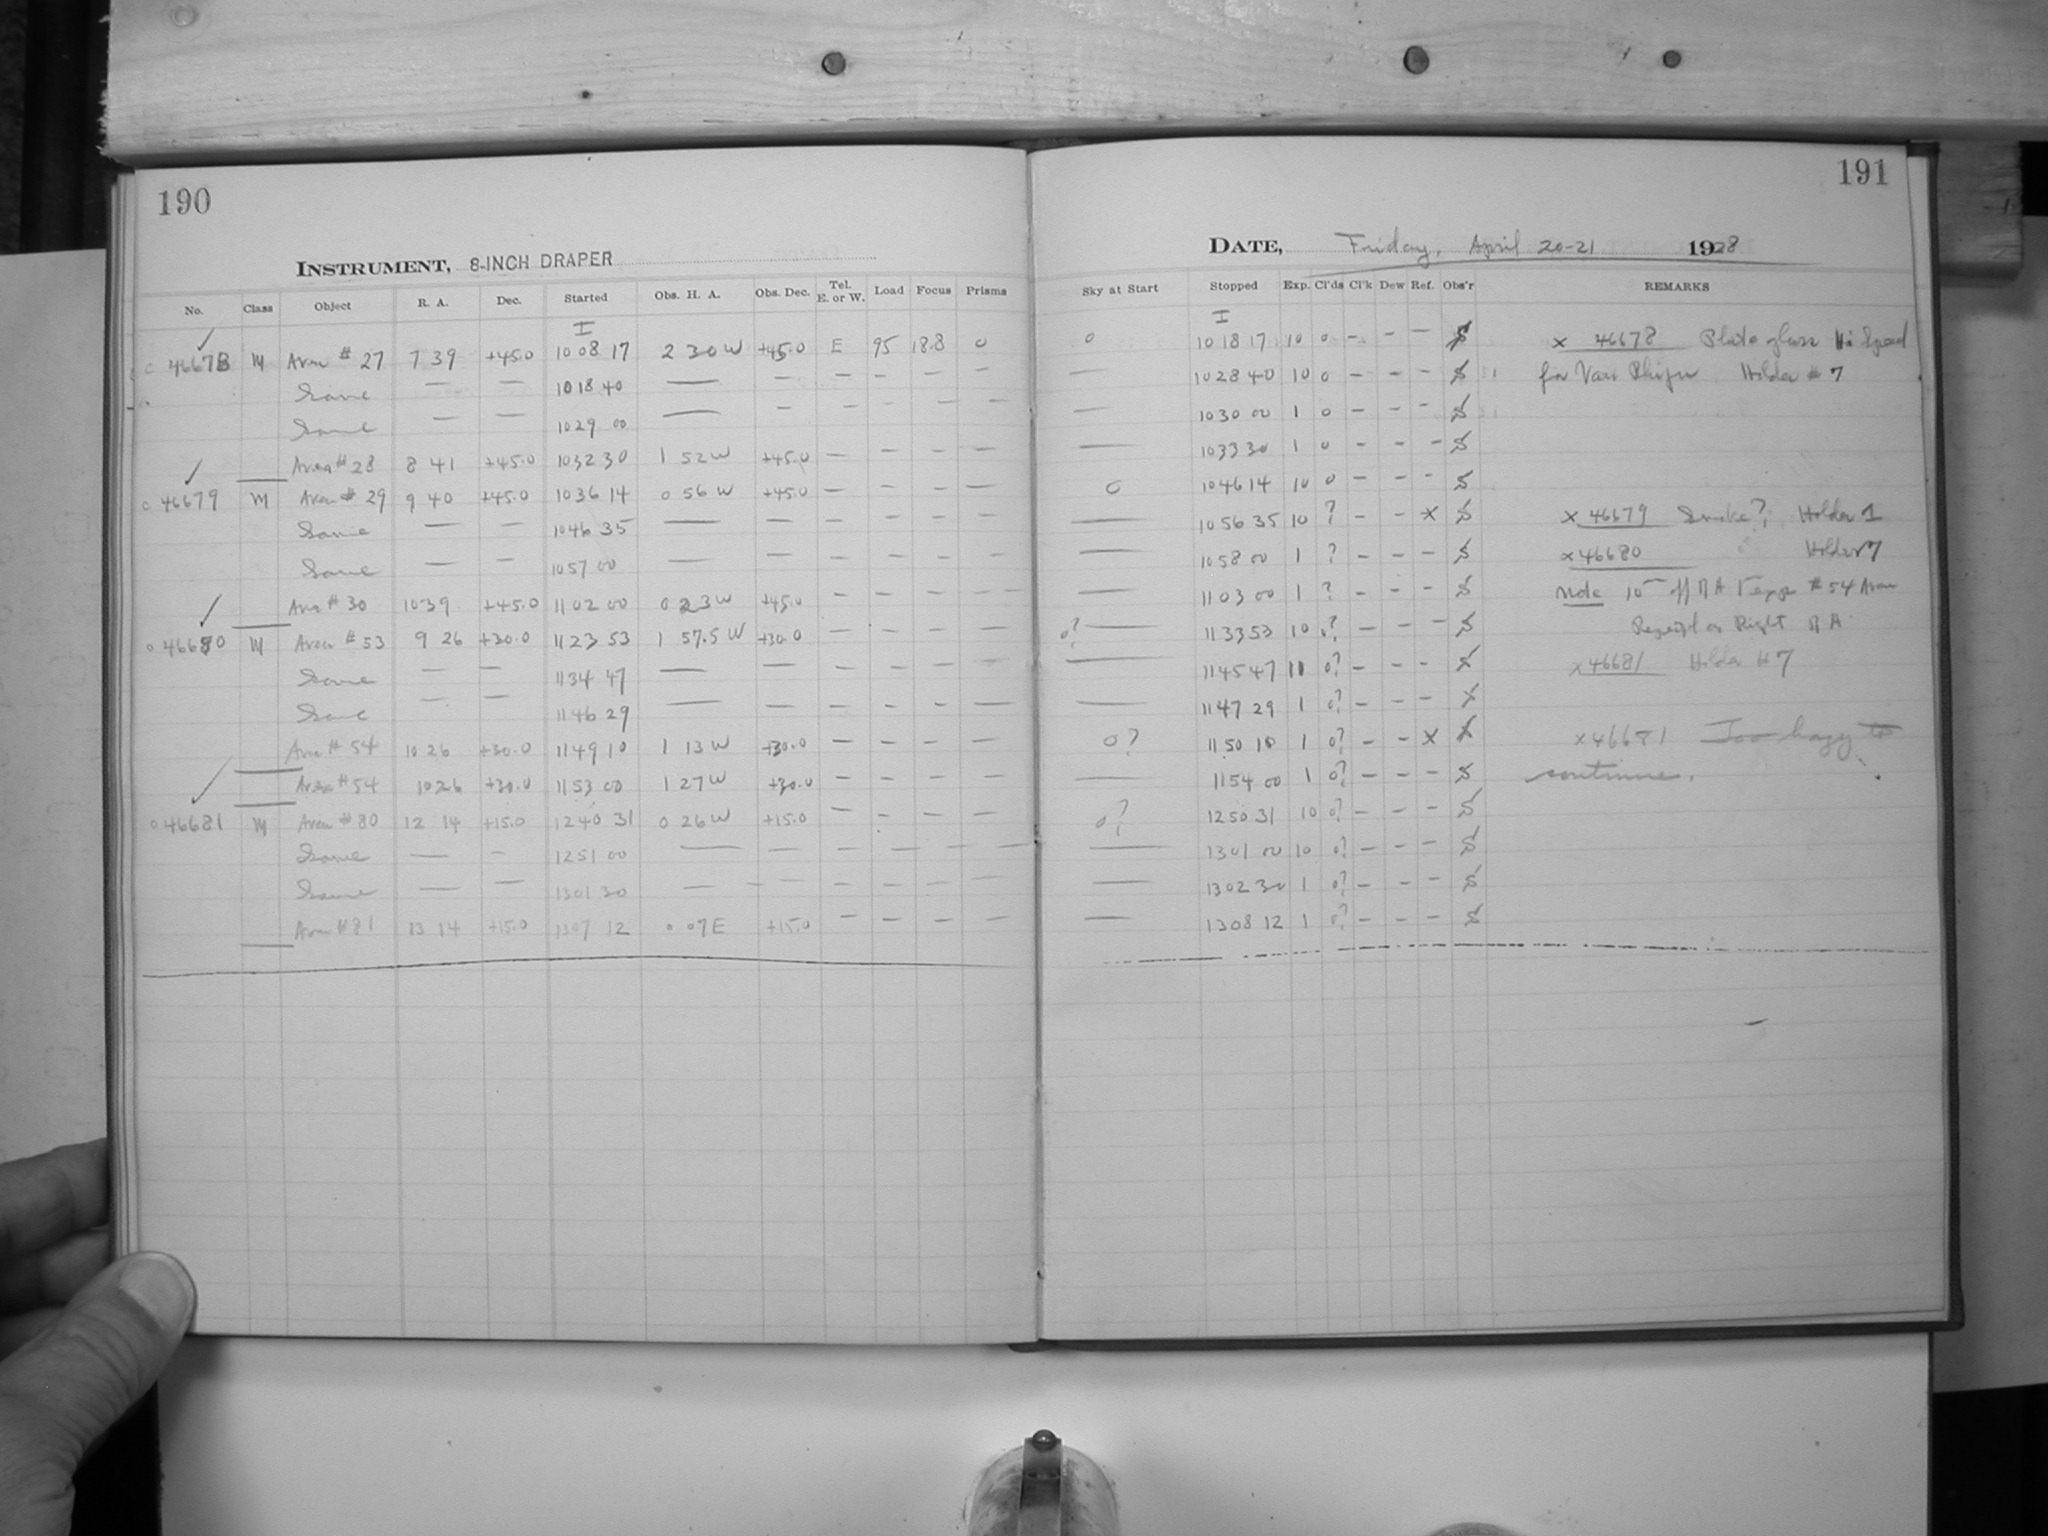 190
INSTRUMENT, 8-INCH DRAPER
No. Class Object R. A. Dec. Started Obs. H. A. Obs. Dec. Tel. E. or W. Load Focus Prisms
I
c 46678 M Area # 27 7 39 +45.0 10 08 17 2 30 W +45.0 E 95 18.8 0
Same — — 10 18 40 — — — — — —
Same — — 10 29 00 — — — — — —
Area # 28 8 41 +45.0 10 32 30 1 52 W +45.0 — — — —
c 46679 M Area # 29 9 40 +45.0 10 36 14 0 56 W +45.0 — — — —
Same — — 10 46 35 — — — — — —
Same — — 10 57 00 — — — — — —
Area # 30 10 39 +45.0 11 02 00 0 23 W +45.0 — — — —
c 46680 M Area # 53 9 26 +30.0 11 23 53 1 57.5 W +30.0 — — — —
Same — — 11 34 47 — — — — — —
Same — — 11 46 29 — — — — — —
Area # 54 10 26 +30.0 11 49 10 1 13 W +30.0 — — — —
Area # 54 10 26 +30.0 11 53 00 1 27 W +30.0 — — — —
c 46681 M Area # 80 12 14 +15.0 12 40 31 0 26 W +15.0 — — — —
Same — — 12 51 00 — — — — — —
Same — — 13 01 30 — — — — — —
Area # 81 13 14 +15.0 13 07 12 0 07 E +15.0 — — — —
191
DATE, Friday, April 20-21 1928
Sky at Start Stopped Exp. Cl'ds Cl'k Dew Ref. Obs'r REMARKS
I
0 10 18 17 10 0 — — — S x 46678 Plate glass Hi Speed
— 10 28 40 10 0 — — — S for Van Rhijn Holder # 7
— 10 30 00 1 0 — — — S
— 10 33 30 1 0 — — — S
0 10 46 14 10 0 — — — S
— 10 56 35 10 ? — — x S x 46679 Smoke? Holder 1
— 10 58 00 1 ? — — — S x 46680 Holder 7
— 11 03 00 1 ? — — — S Note 10 off RA # 54 Area
0? — 11 33 53 10 0? — — — S Right RA
— 11 45 47 11 0? — — — S x 46681 Holder # 7
— 11 47 29 1 0? — — — S
0? 11 50 10 1 0? — — x S x 46681 Too hazy to
— 11 54 00 1 0? — — — S continue.
0? 12 50 31 10 0? — — — S
— 13 01 00 10 0? — — — S
— 13 02 30 1 0? — — — S
— 13 08 12 1 0? — — — S